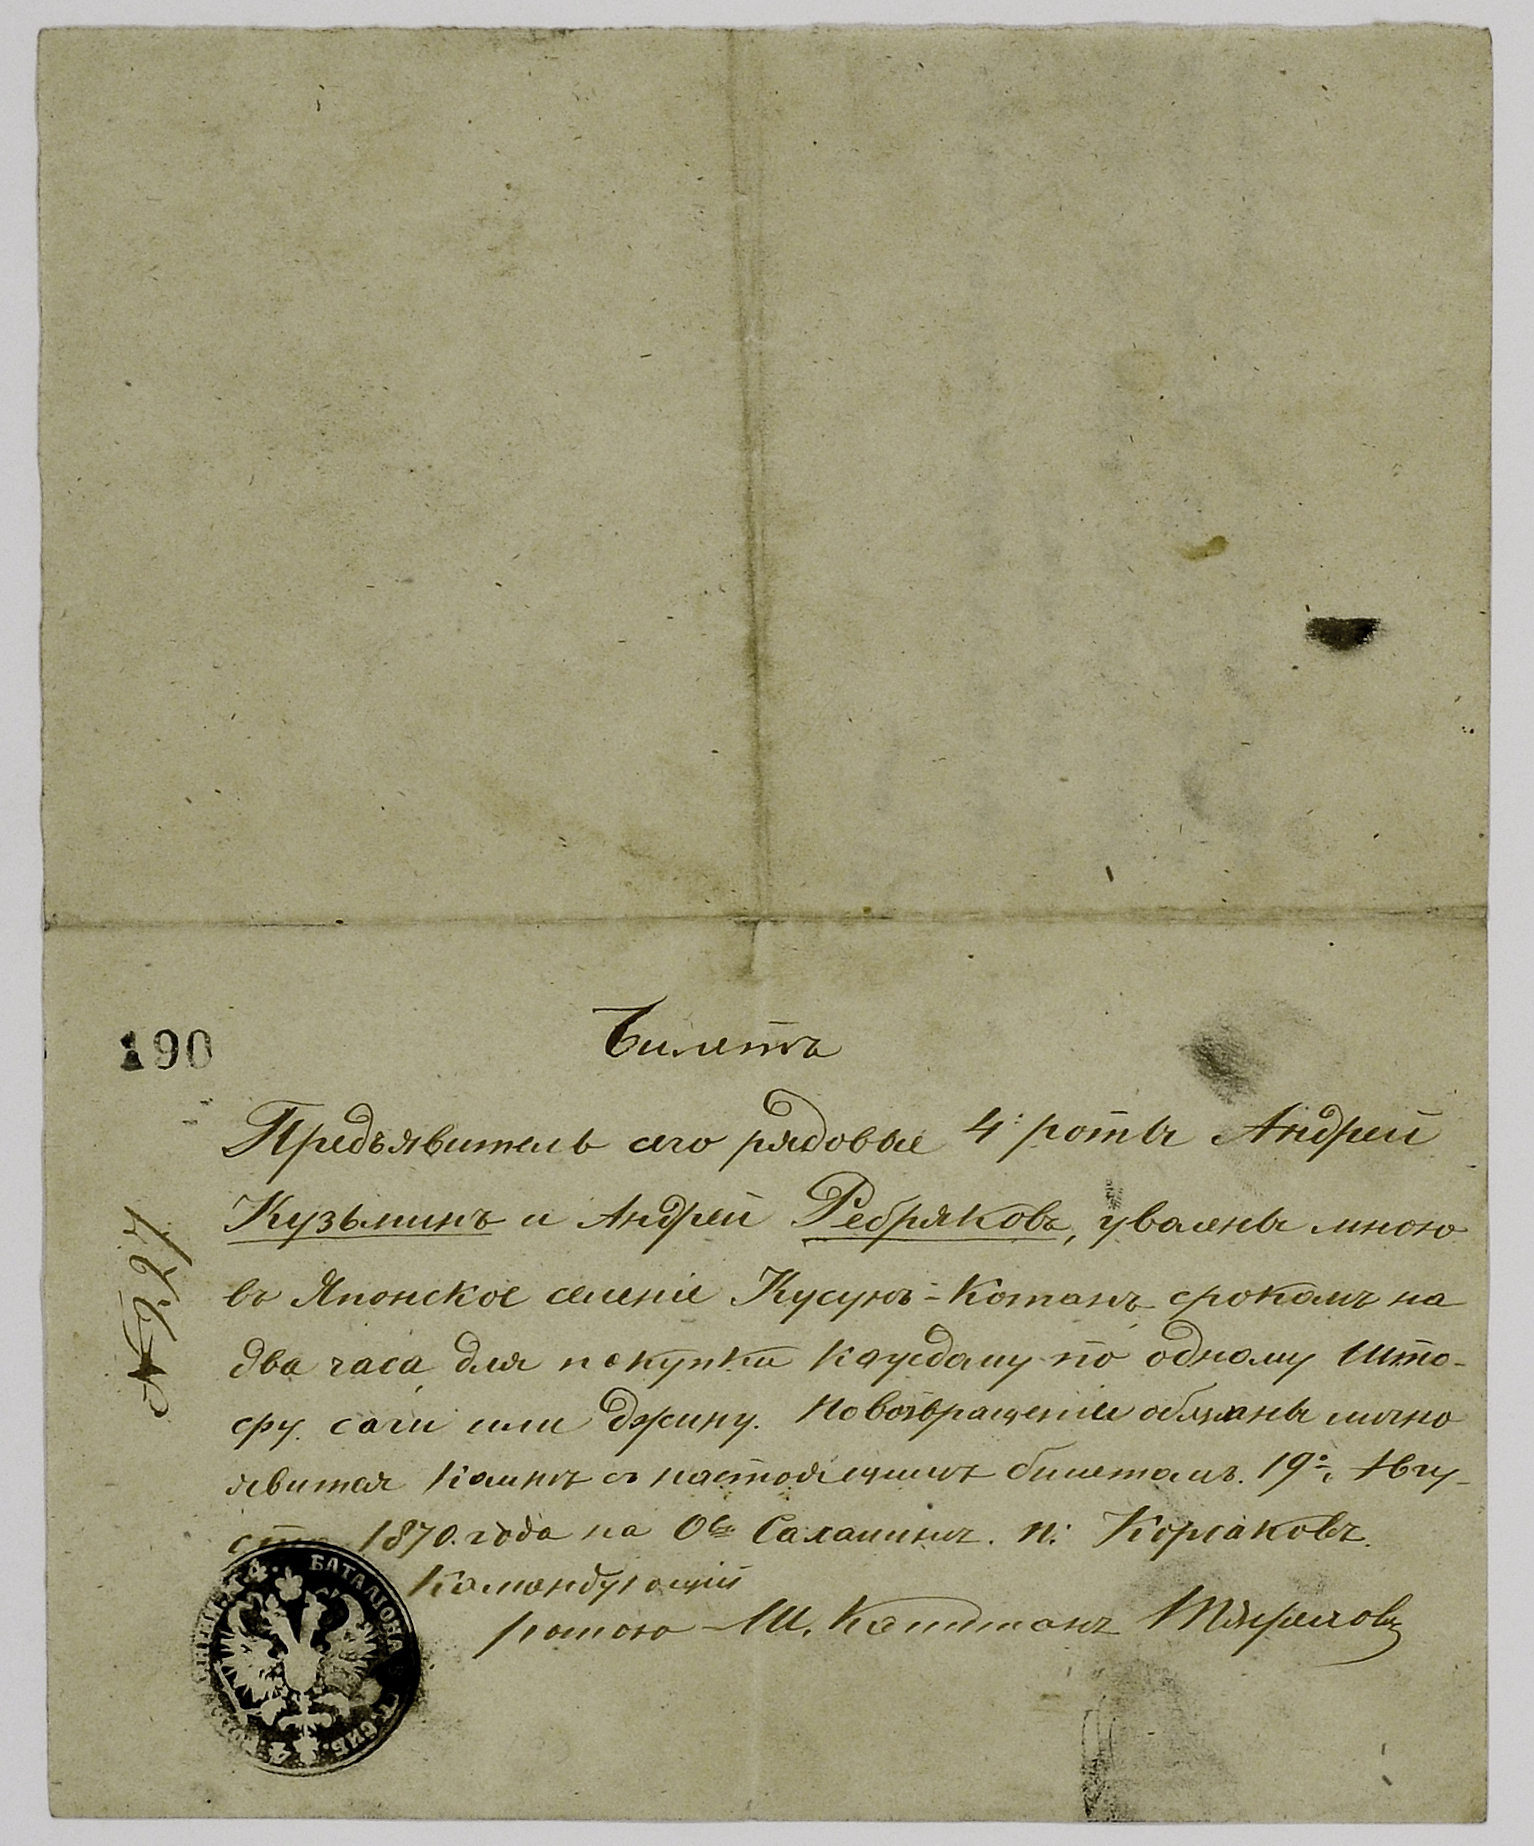 190
Билетъ
Предъявитель сего рядовые 4й роты Андрей
Кузьминъ и Андрей Ребряковъ, уволены мною
въ Японское селеніе Кусунъ-Котанъ срокомъ на
два часа, для покупки каждому по одному што-
фу саги или джину. По возвращеніи обязаны лично
явится комнѣ съ настоящимъ билетомъ. 19го Авгу-
ста 1870. года на О-вѣ Сахалинѣ. п. Корсаковъ.
Командующій
ротою Ш. Капитанъ
БАТАЛІОНА